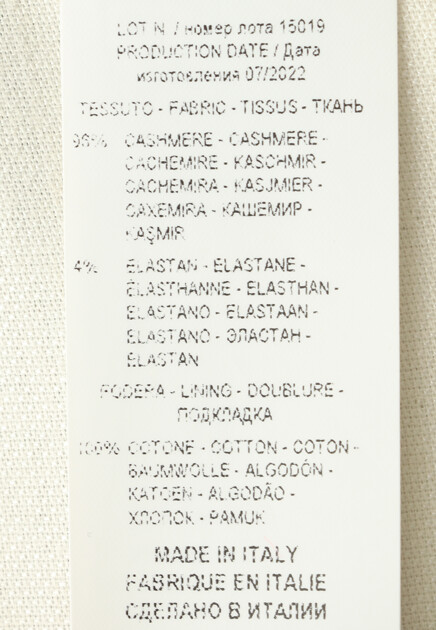 LOT N. / номер лота 15019
PRODUCTION DATE / Дата
изготовления 07/2022
TESSUTO - FABRIC - TISSUS - ТКАНЬ
96% CASHMERE - CASHMERE -
CACHEMIRE - KASCHMIR -
CACHEMIRA - KASJMIER -
CAXEMIRA - КАШЕМИР -
KAŞMIR
4% ELASTAN - ELASTANE -
ELASTHANNE - ELASTHAN -
ELASTANO - ELASTAAN -
ELASTANO - ЭЛАСТАН -
ELASTAN
FODERA - LINING - DOUBLURE -
ПОДКЛАДКА
100% COTONE - COTTON - COTON -
BAUMWOLLE - ALGODÓN -
KATOEN - ALGODÃO -
ХЛОПОК - PAMUK
MADE IN ITALY
FABRIQUE EN ITALIE
СДЕЛАНО В ИТАЛИИ